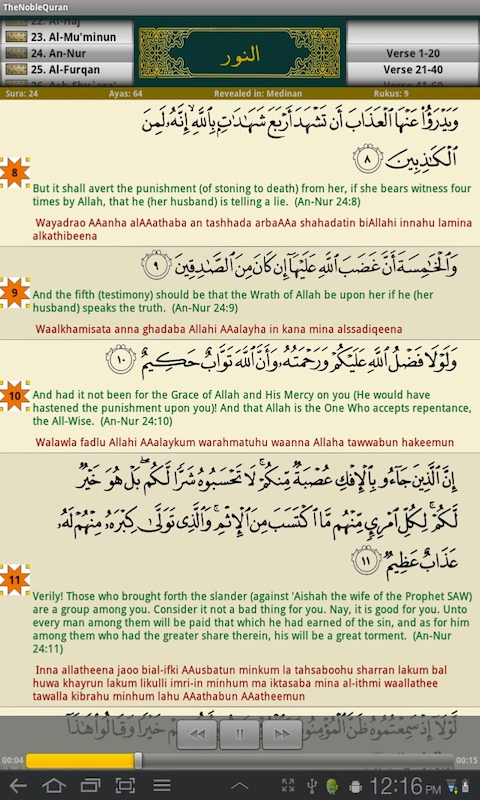 TheNobleQuran
22. Al-Haj
23. Al-Mu'minun
24. An-Nur
25. Al-Furqan
النور
Verse 1-20
Verse 21-40
Sura: 24 Ayas: 64 Revealed in: Medinan Rukus: 9
وَيَدْرَؤُا۟ عَنْهَا ٱلْعَذَابَ أَن تَشْهَدَ أَرْبَعَ شَهَٰدَٰتٍۭ بِٱللَّهِ ۙ إِنَّهُۥ لَمِنَ
ٱلْكَٰذِبِينَ ٨
8
But it shall avert the punishment (of stoning to death) from her, if she bears witness four
times by Allah, that he (her husband) is telling a lie. (An-Nur 24:8)
Wayadrao AAanha alAAathaba an tashhada arbaAAa shahadatin biAllahi innahu lamina
alkathibeena
وَٱلْخَٰمِسَةَ أَنَّ غَضَبَ ٱللَّهِ عَلَيْهَآ إِن كَانَ مِنَ ٱلصَّٰدِقِينَ ٩
9
And the fifth (testimony) should be that the Wrath of Allah be upon her if he (her
husband) speaks the truth. (An-Nur 24:9)
Waalkhamisata anna ghadaba Allahi AAalayha in kana mina alssadiqeena
وَلَوْلَا فَضْلُ ٱللَّهِ عَلَيْكُمْ وَرَحْمَتُهُۥ وَأَنَّ ٱللَّهَ تَوَّابٌ حَكِيمٌ ١٠
10
And had it not been for the Grace of Allah and His Mercy on you (He would have
hastened the punishment upon you)! And that Allah is the One Who accepts repentance,
the All-Wise. (An-Nur 24:10)
Walawla fadlu Allahi AAalaykum warahmatuhu waanna Allaha tawwabun hakeemun
إِنَّ ٱلَّذِينَ جَآءُو بِٱلْإِفْكِ عُصْبَةٌ مِّنكُمْ ۚ لَا تَحْسَبُوهُ شَرًّا لَّكُم ۖ بَلْ هُوَ خَيْرٌ
لَّكُمْ ۚ لِكُلِّ ٱمْرِئٍ مِّنْهُم مَّا ٱكْتَسَبَ مِنَ ٱلْإِثْمِ ۚ وَٱلَّذِى تَوَلَّىٰ كِبْرَهُۥ مِنْهُمْ لَهُۥ
عَذَابٌ عَظِيمٌ ١١
11
Verily! Those who brought forth the slander (against 'Aishah the wife of the Prophet SAW)
are a group among you. Consider it not a bad thing for you. Nay, it is good for you. Unto
every man among them will be paid that which he had earned of the sin, and as for him
among them who had the greater share therein, his will be a great torment. (An-Nur
24:11)
Inna allatheena jaoo bial-ifki AAusbatun minkum la tahsaboohu sharran lakum bal
huwa khayrun lakum likulli imri-in minhum ma iktasaba mina al-ithmi waallathee
tawalla kibrahu minhum lahu AAathabun AAatheemun
لَّوْلَآ إِذْ سَمِعْتُمُوهُ ظَنَّ ٱلْمُؤْمِنُونَ خَيْرًا وَقَالُوا۟ هَٰذَآ
00:04 00:15
12:16 PM